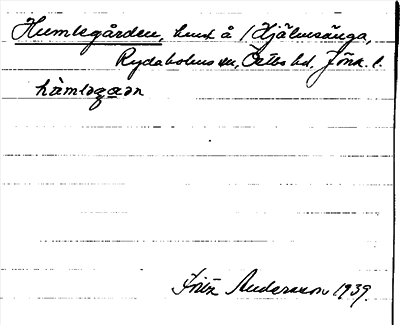 Humlegården, hmd å 1 Hjälmsänga,
Rydaholms sn, Östbo hd. Jönk. l.
hàmləga̲ən
Fritz Andersson 1939.